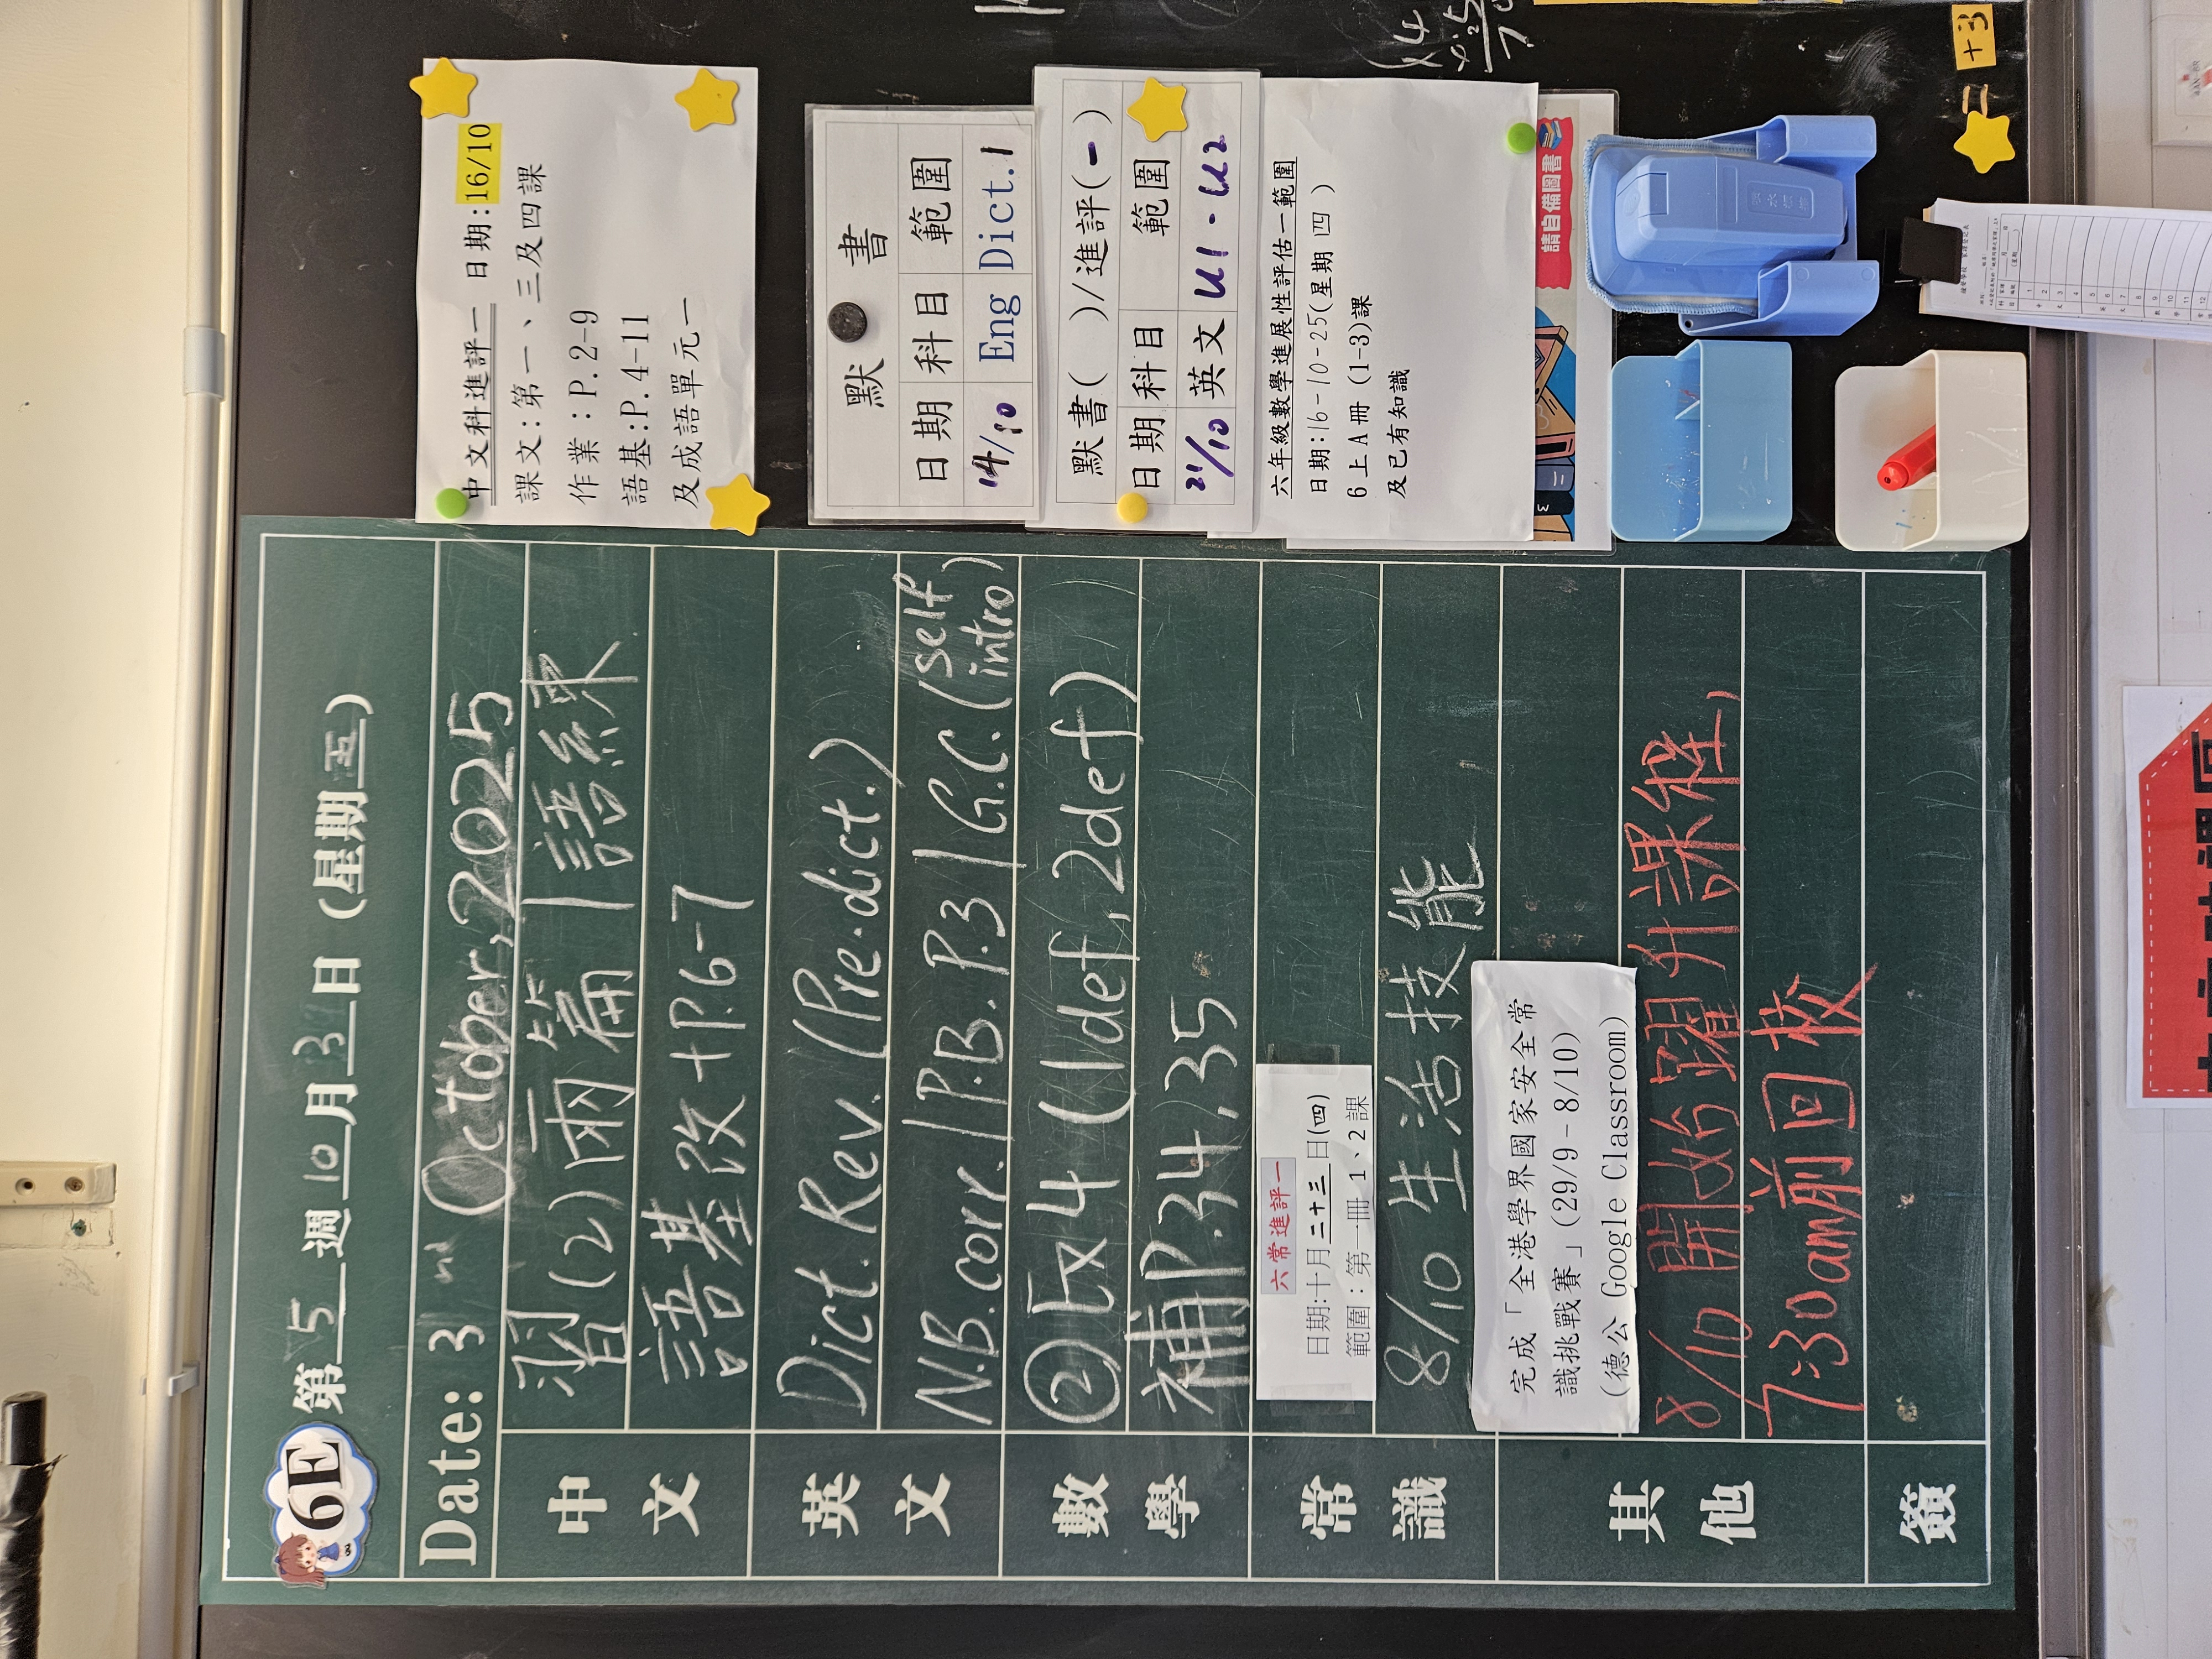 6E 第 5 週 10 月 3 日 (星期 五)
Date: 3 nd October, 2025
中文
習(2)兩篇 | 語練
語基改+P.6-7
英文
Dict. Rev. (Pre.dict.)
N.B. corr. | P.B. P.3 | G.C. (self intro)
數學
補P.34, 35
常識
六常進評一
日期:十月二十三日(四)
範圍：第一冊 1、2 課
8/10 生活技能
其他
完成「全港學界國家安全常
識挑戰賽」(29/9-8/10)
(德公 Google Classroom)
8/10 開始躍升課程,
7:30am前回校
簽
中文科進評一 日期:16/10
課文:第一、三及四課
作業：P.2-9
語基:P.4-11
及成語單元一
默 書
日期 科目 範圍
14/10 Eng Dict.1
默書( )/進評(一)
日期 科目 範圍
21/10 英文 U1-U2
六年級數學進展性評估一範圍
日期:16-10-25(星期四)
6上A冊 (1-3)課
及已有知識
請自備圖書
= +3